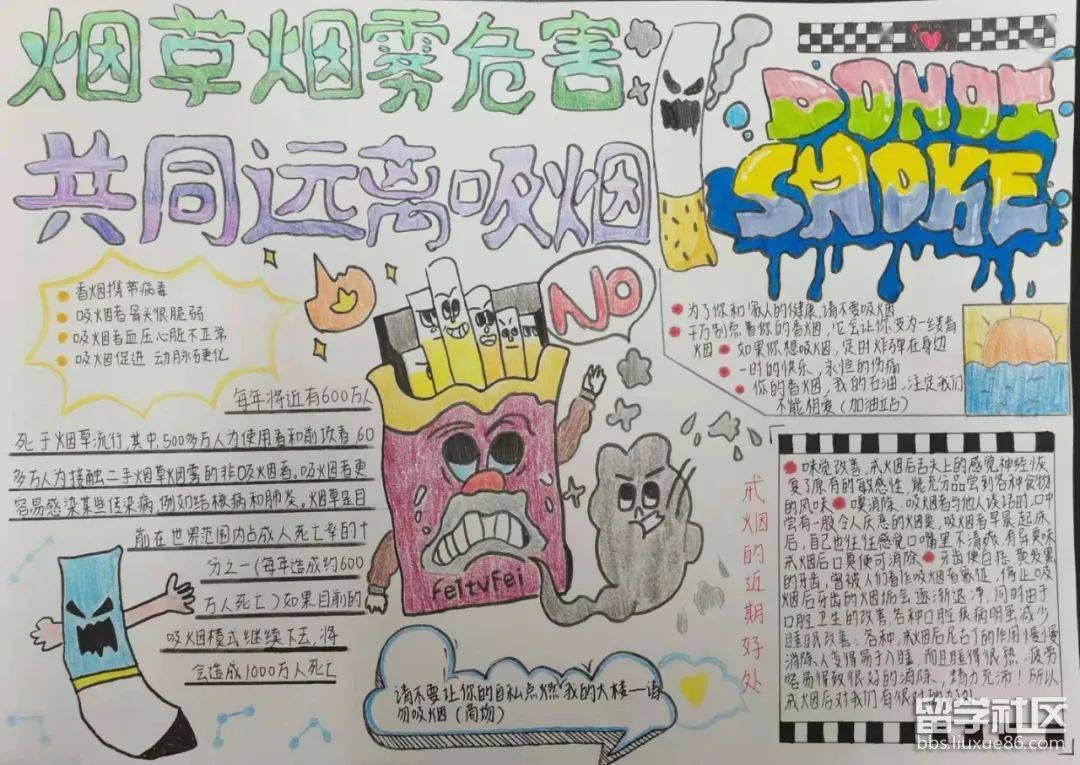 烟草烟雾危害
共同远离吸烟
DO NOT
SMOKE
香烟携带病毒
吸烟者骨头很脆弱
吸烟者血压心脏不正常
吸烟促进 动脉老更化
NO
为了你和家人的健康,请不要吸烟
千万别点着你的香烟,它会让你变为一缕青
烟 如果你想吸烟,定时炸弹在身边
一时的快乐、永恒的伤痛
你的香烟,我的石油,注定我们
不能相爱(加油站)
每年将近有600万人
死于烟草流行,其中,500多万人为使用者和前吸者 60
多万人为接触二手烟草烟雾的非吸烟者。吸烟者更
容易感染某些传染病,例如结核病和肺炎。烟草是目
前在世界范围内占成人死亡率的十
分之一(每年造成约600
万人死亡)如果目前的
吸烟模式继续下去,将
会造成1000万人死亡
FeltvFei
请不要让你的自私点燃我的大楼—请
勿吸烟(商场)
戒烟的近期好处
味觉改善,戒烟后舌头上的感觉神经恢
复了原有的敏感性,能充分品尝到各种食物
的风味 嗅消除、吸烟者与他人谈话时,口中
尝有一股令人厌恶的烟臭,吸烟者早晨起床
后,自己也往往感觉口嘴里不清爽,有异臭味
戒烟后口臭便可消除 牙齿便白
的牙齿,曾被人们看作吸烟者象征,停止吸
烟后牙齿的烟垢会逐渐退净,同时由于
口腔卫生的改善,各种口腔疾病明显减少
睡眠改善:各种,戒烟后尼古丁的作用慢慢
消除,人变得易于入睡,而且睡得很熟,疲劳
容易得到很好的消除,精力充沛!所以
戒烟后对我们有很
留学社区
bbs.liuxue86.com